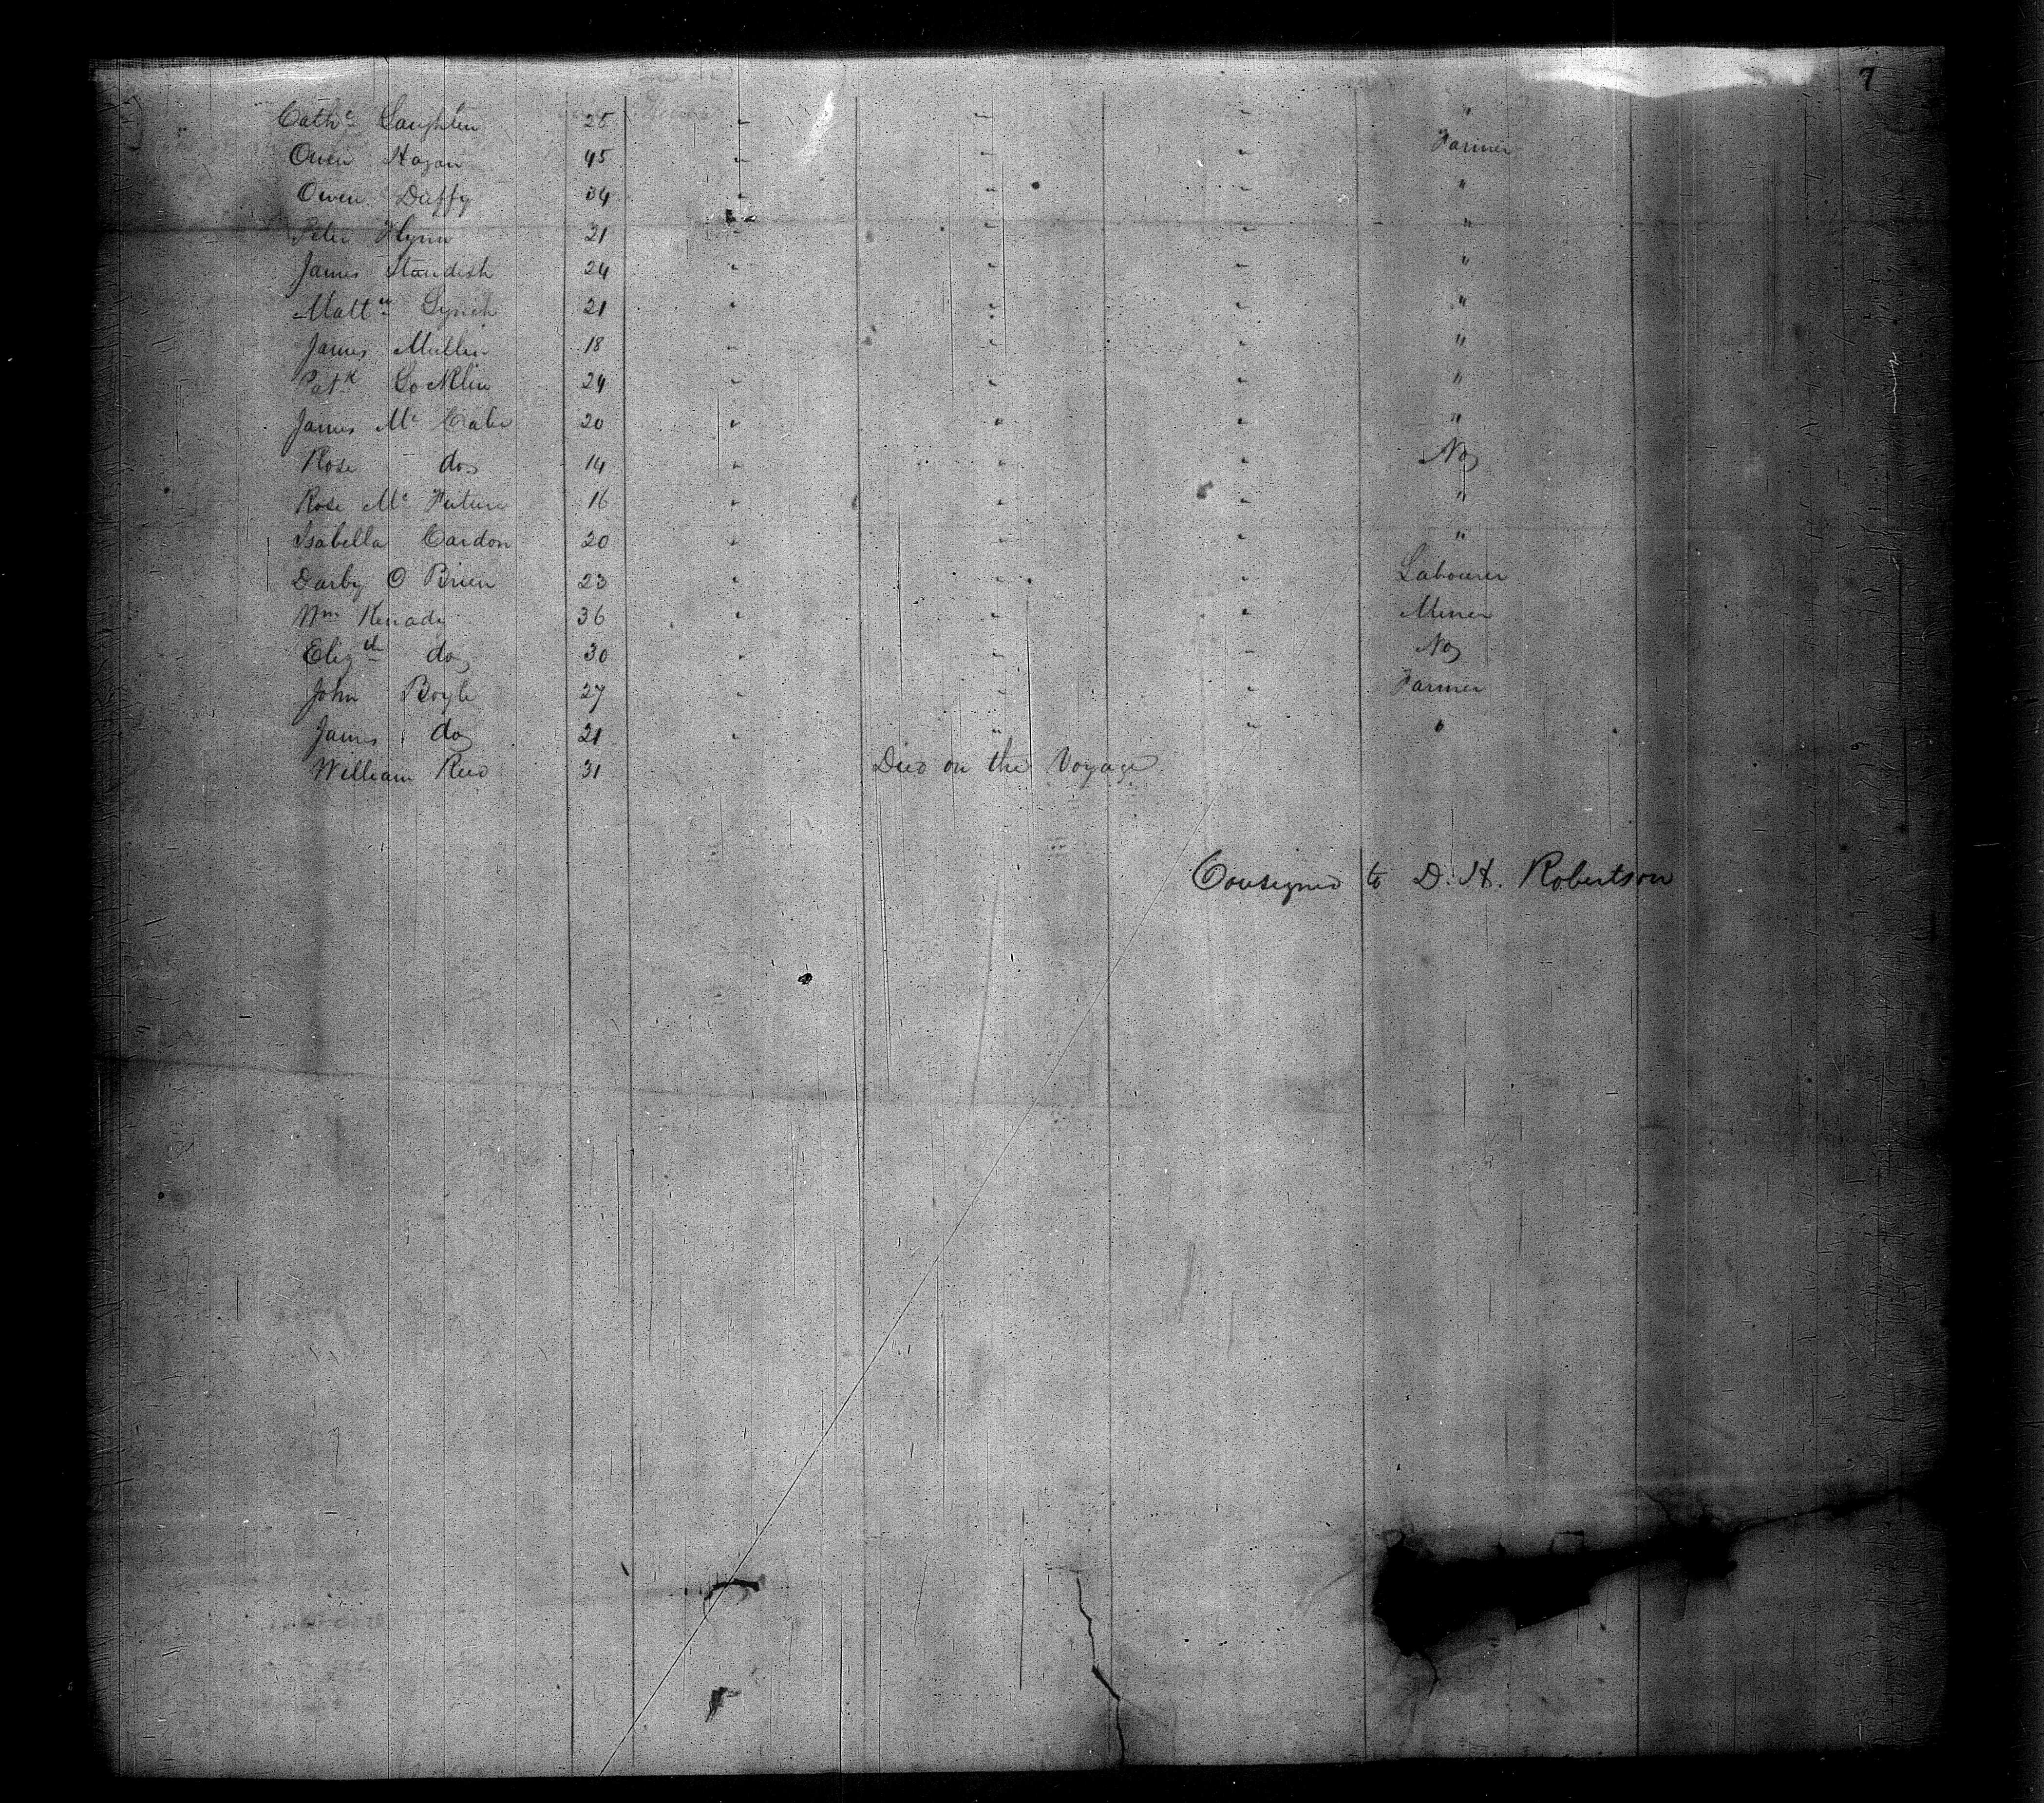 7
Cathe Laughlin 25 " " " "
Owen Hagan 45 " " " Farmer
Owen Duffy 34 " " " "
Peter Flynn 21 " " " "
James Standish 24 " " " "
Mattw Lynch 21 " " " "
James Mullin 18 " " " "
Patk Locklin 24 " " " "
James Mc Cabe 20 " " " "
Rose do 14 " " " No
Rose Mc 16 " " " "
Isabella Cardon 20 " " " "
Darby O Brien 23 " " " Labourer
Wm Kenady 36 " " " Miner
Elizth do 30 " " " No
John Boyle 27 " " " Farmer
James do 21 " " " "
William Reed 31 Died on the Voyage
Consigned to D. H. Robertson